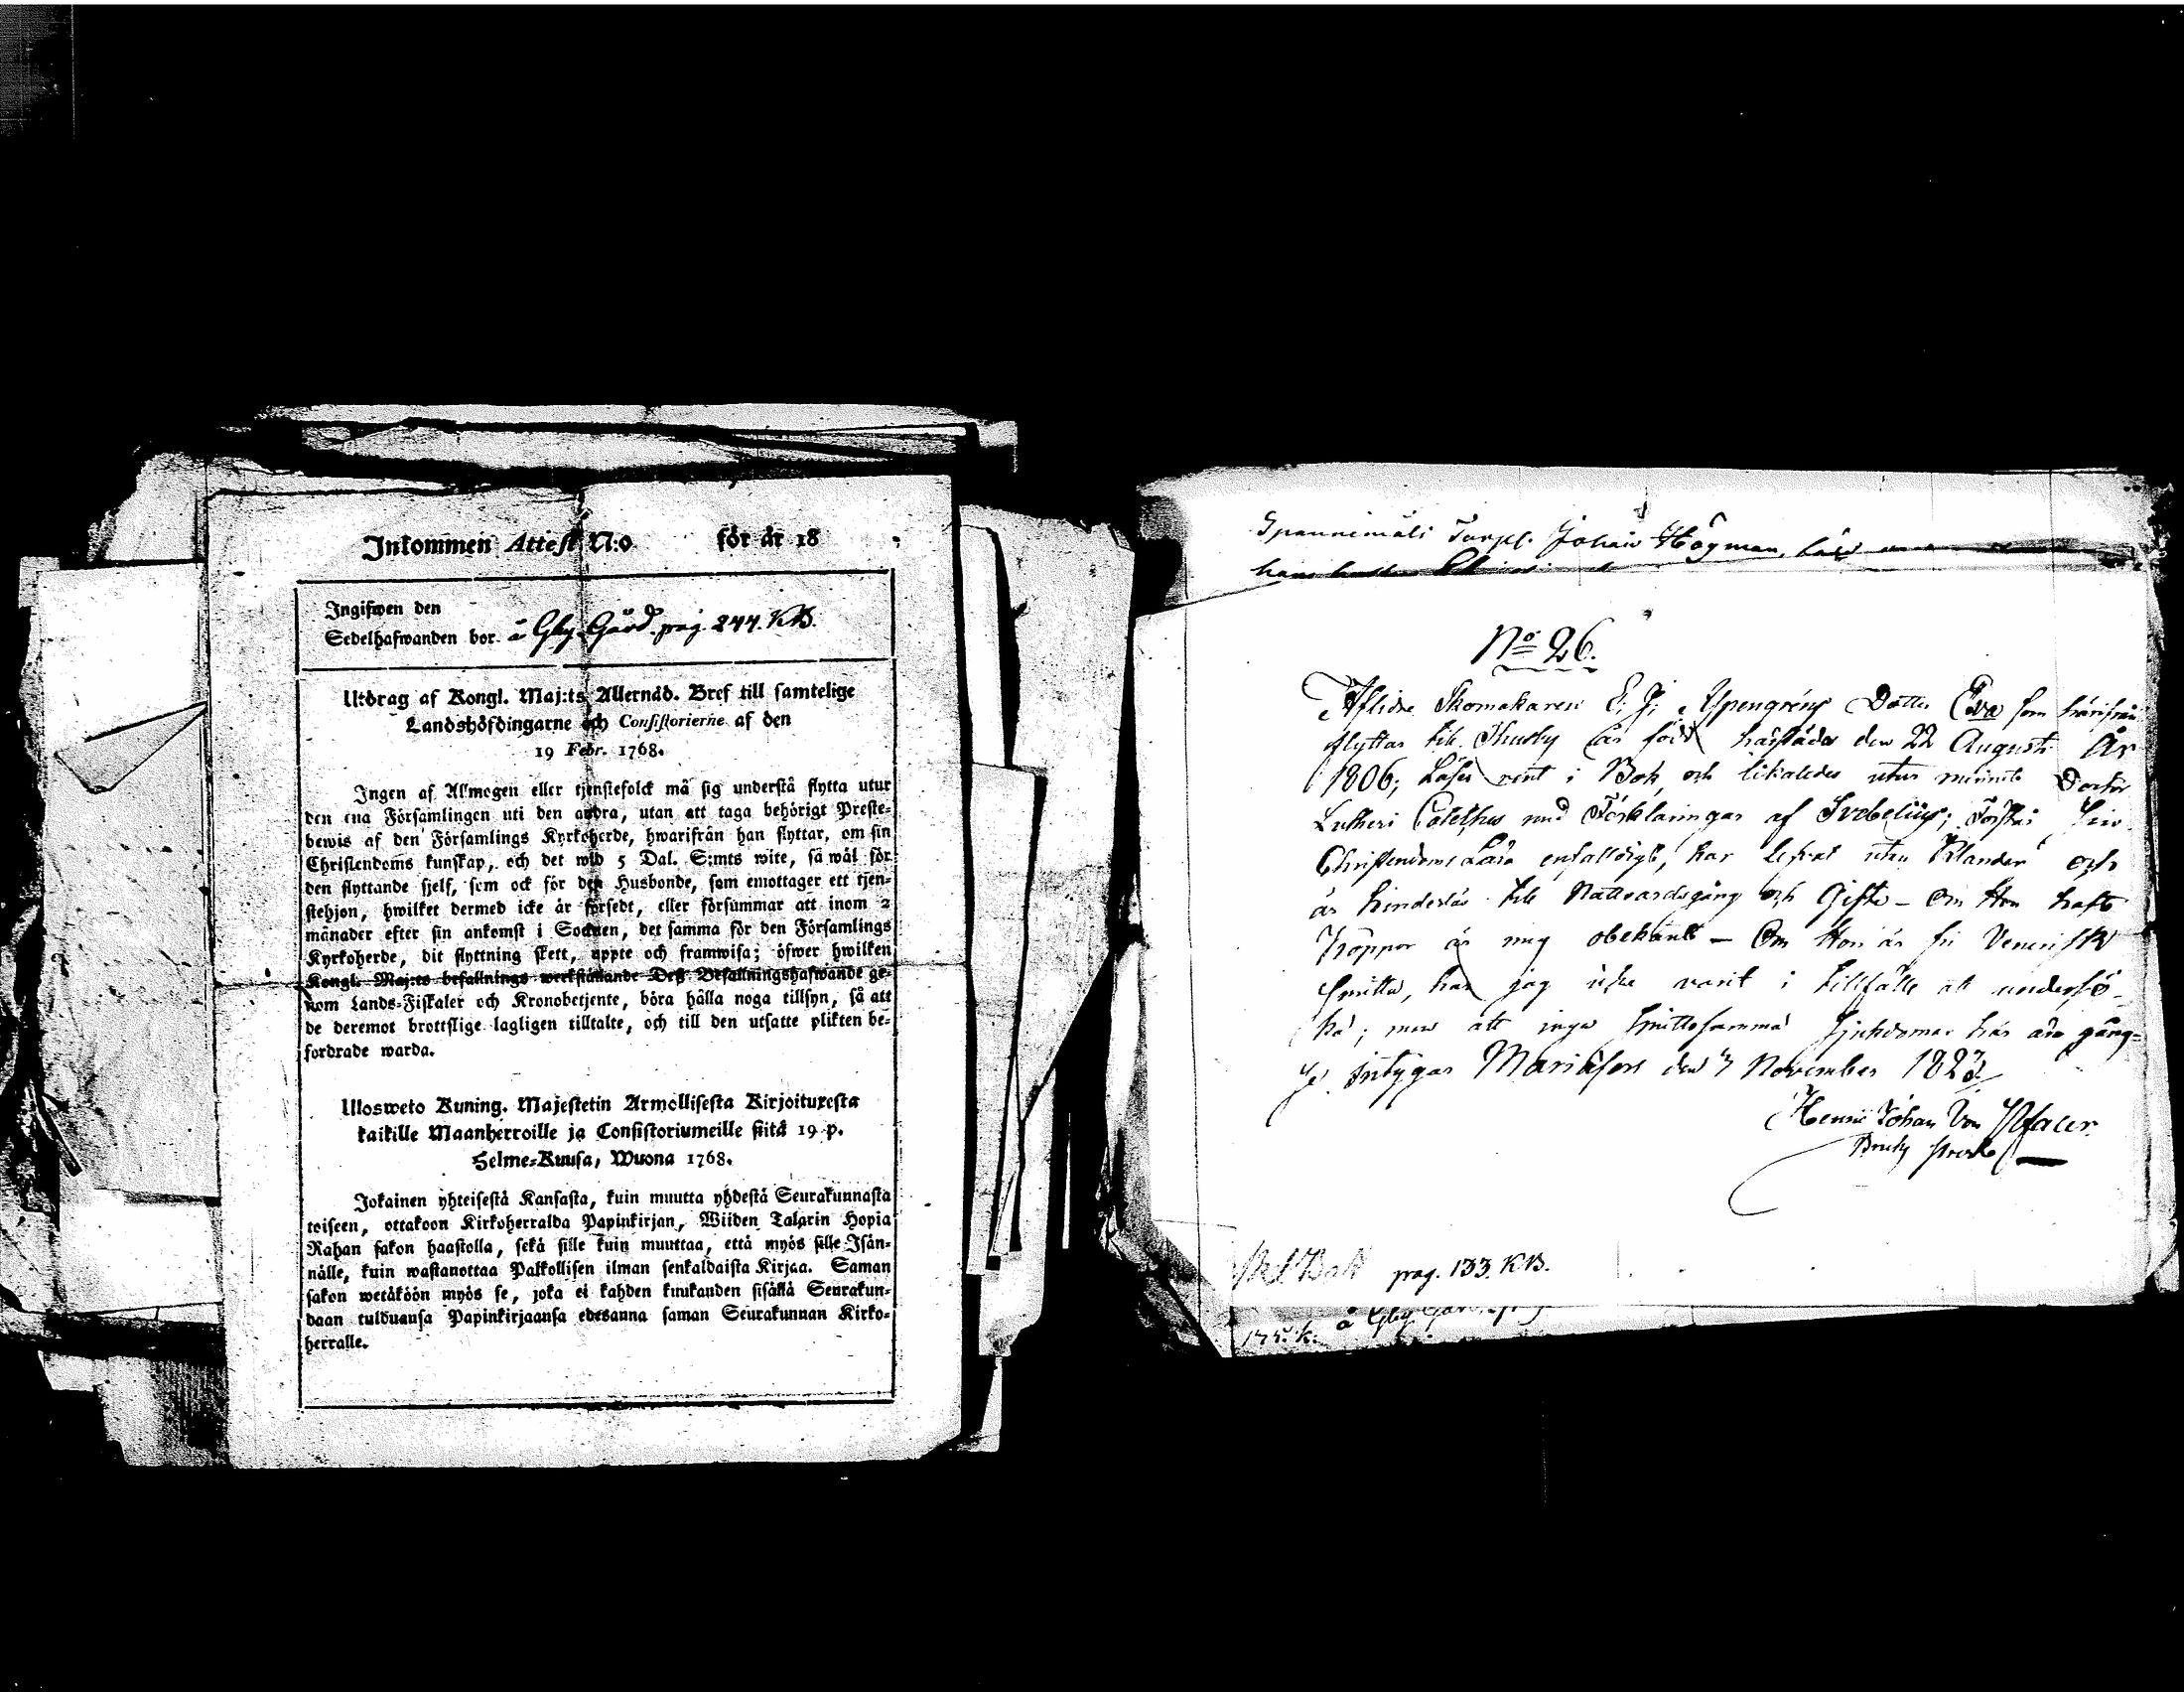 Inkommen Attest N:o för år 18
Ingifwen den
Sedelhafwanden bor å Gby Gård pag. 244. KB.
Utdrag af Kongl. Maj:ts Allernåd. Bref till samtelige
Landshöfdingarne och Consistorierne af den
19 Febr. 1768.
Ingen af Allmogen eller tjenstefolck må sig understå flytta utur
den ena Församlingen uti den andra, utan att taga behörigt Preste-
bewis af den Församlings Kyrkoherde, hwarifrån han flyttar, om sin
Christendoms kunskap, och det wid 5 Dal. S:mts wite, så wäl för
den flyttande sjelf, som ock för den Husbonde, som emottager ett tjen-
stehjon, hwilket dermed icke är försedt, eller försummar att inom 2
månader efter sin ankomst i Socknen, det samma för den Församlings
Kyrkoherde, dit flyttning skett, uppte och framwisa; öfwer hwilken
Kongl. Maj:ts befallnings werkställande Deß Befallningshafwande ge-
nom Lands-Fiskaler och Kronobetjente, böra hålla noga tillsyn, så att
de deremot brottslige lagligen tilltalte, och till den utsatte plikten be-
fordrade warda.
Ulosweto Kuning. Majestetin Armollisesta Kirjoituxesta
kaikille Maanherroille ja Consistoriumeille siitä 19 p.
Helme-Kuusa, Wuona 1768.
Jokainen yhteisestä Kansasta, kuin muutta yhdestä Seurakunnasta
toiseen, ottakoon Kirkoherralda Papinkirjan, Wiiden Talarin Hopia
Rahan sakon haastolla, sekä sille kuin muuttaa, että myös sille Isän-
nälle, kuin wastanottaa Palkollisen ilman senkaldaista Kirjaa. Saman
sakon wetäköön myös se, joka ei kahden kuukauden sisällä Seurakun-
daan tulduansa Papinkirjaansa edesanna saman Seurakunnan Kirko-
herralle.
Spannimäli Torp. Johan Högman
No 26.
Aflidne Skomakaren E. J. Spengrens Dotter Eva som härifrån
flyttar till Thusby är född härstädes den 22 Augusti År
1806; Läser rent i Bok, och likaledes utur minnet Doctor
Lutheri Catechus med Förklaringar af Svebelius; Förstår sin
Christendoms Lära enfalldigt, har lefvat utan Klander och
är hinderlös till Nattvardsgång och Gifte - Om Hon haft
Koppor är mig obekant - Om Hon är fri Venerisk
Smitta, har jag icke varit i tillfälle att undersö-
ka; men att inga smittosamma Sjukdomar här äro gång-
se intygar Mariæfors den 3 November 1823
Henric Johan Von Pfaler
Bruks Predik
pag. 133. KB.
å Gby Gård